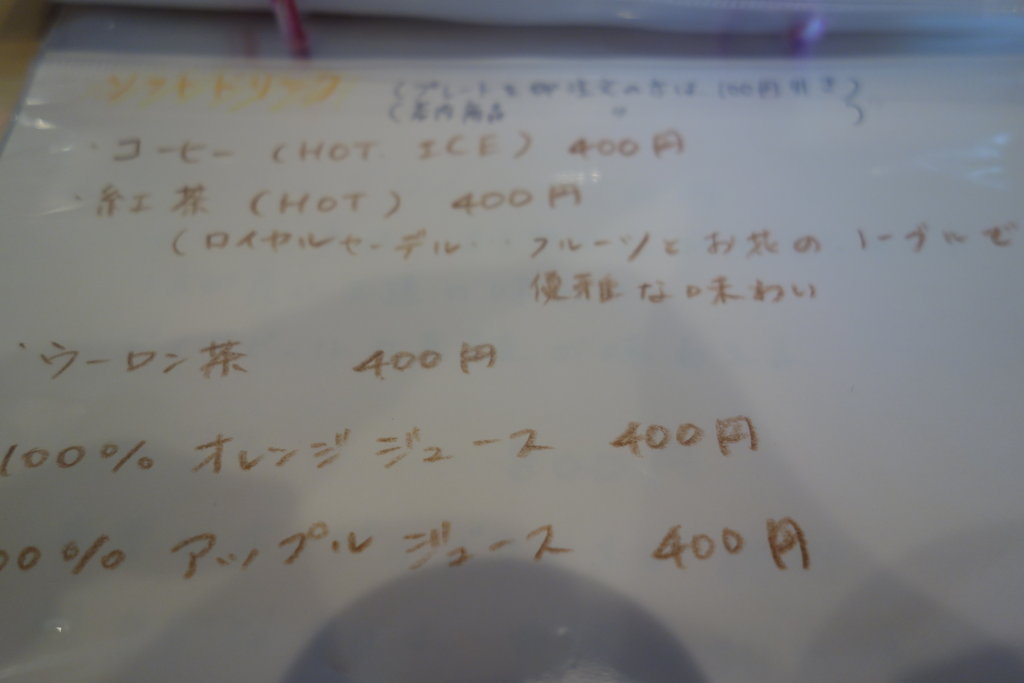 ソフトドリンク (プレートを御注文の方は 100円引き)
(店内商品 〃 )
・コーヒー (HOT. ICE) 400円
・紅茶 (HOT) 400円
(ロイヤルセーデル… フルーツとお花のノーブルで
優雅な味わい
・ウーロン茶 400円
100% オレンジジュース 400円
00% アップルジュース 400円